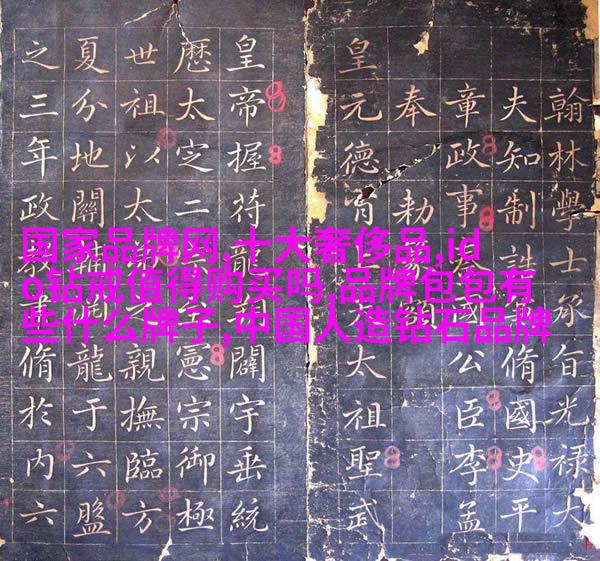 翰林學士承旨光祿大
夫知制誥脩國史平
章政事國公臣李孟
奉勅
皇元德冑太祖聖武
皇帝握符龍闢宇垂統
厯太定二憲宗御極
世祖以太之親撫臨方
夏分地關龍于六盤
之三年政教脩於內六
国家品牌网,十大奢侈品,id
o钻戒值得购买吗,品牌包包有
些什么牌子,中国人造钻石品牌